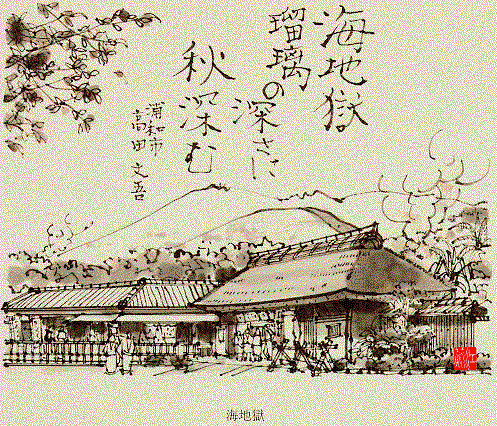 海地獄
瑠璃の深さに
秋深む
浦和市
高田文吾
海地獄